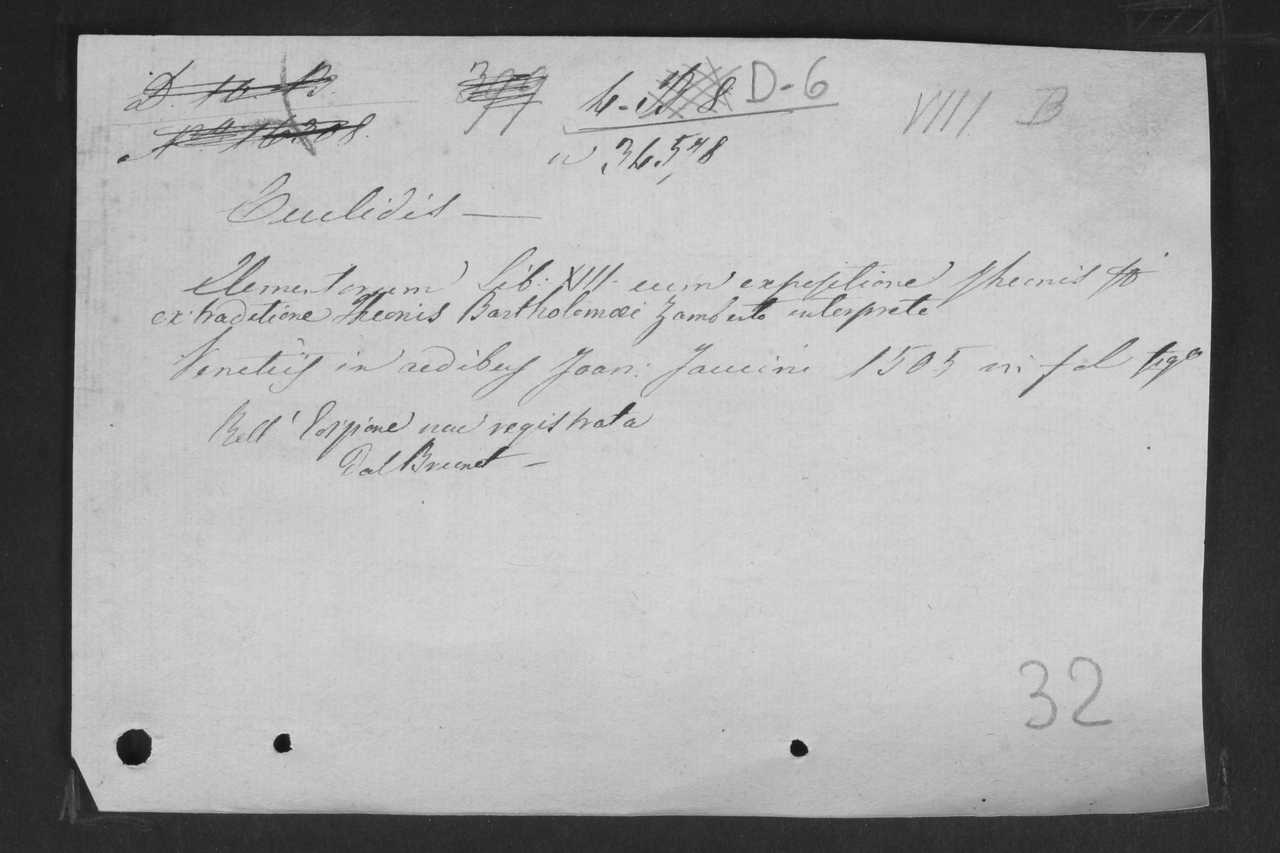 D. 10. B.
399
4-
D-6
VIII B
No 16208.
n 36,578
Euclidis —
Elementorum Lib: XIII. cum expositione Theonis
ex traditione Theonis Bartholomæi Zamberto interprete
Venetiis in ædibus Joan: Tacuini 1505 in fol fig
Bell' Copione non registrata
Dal Brunet —
32